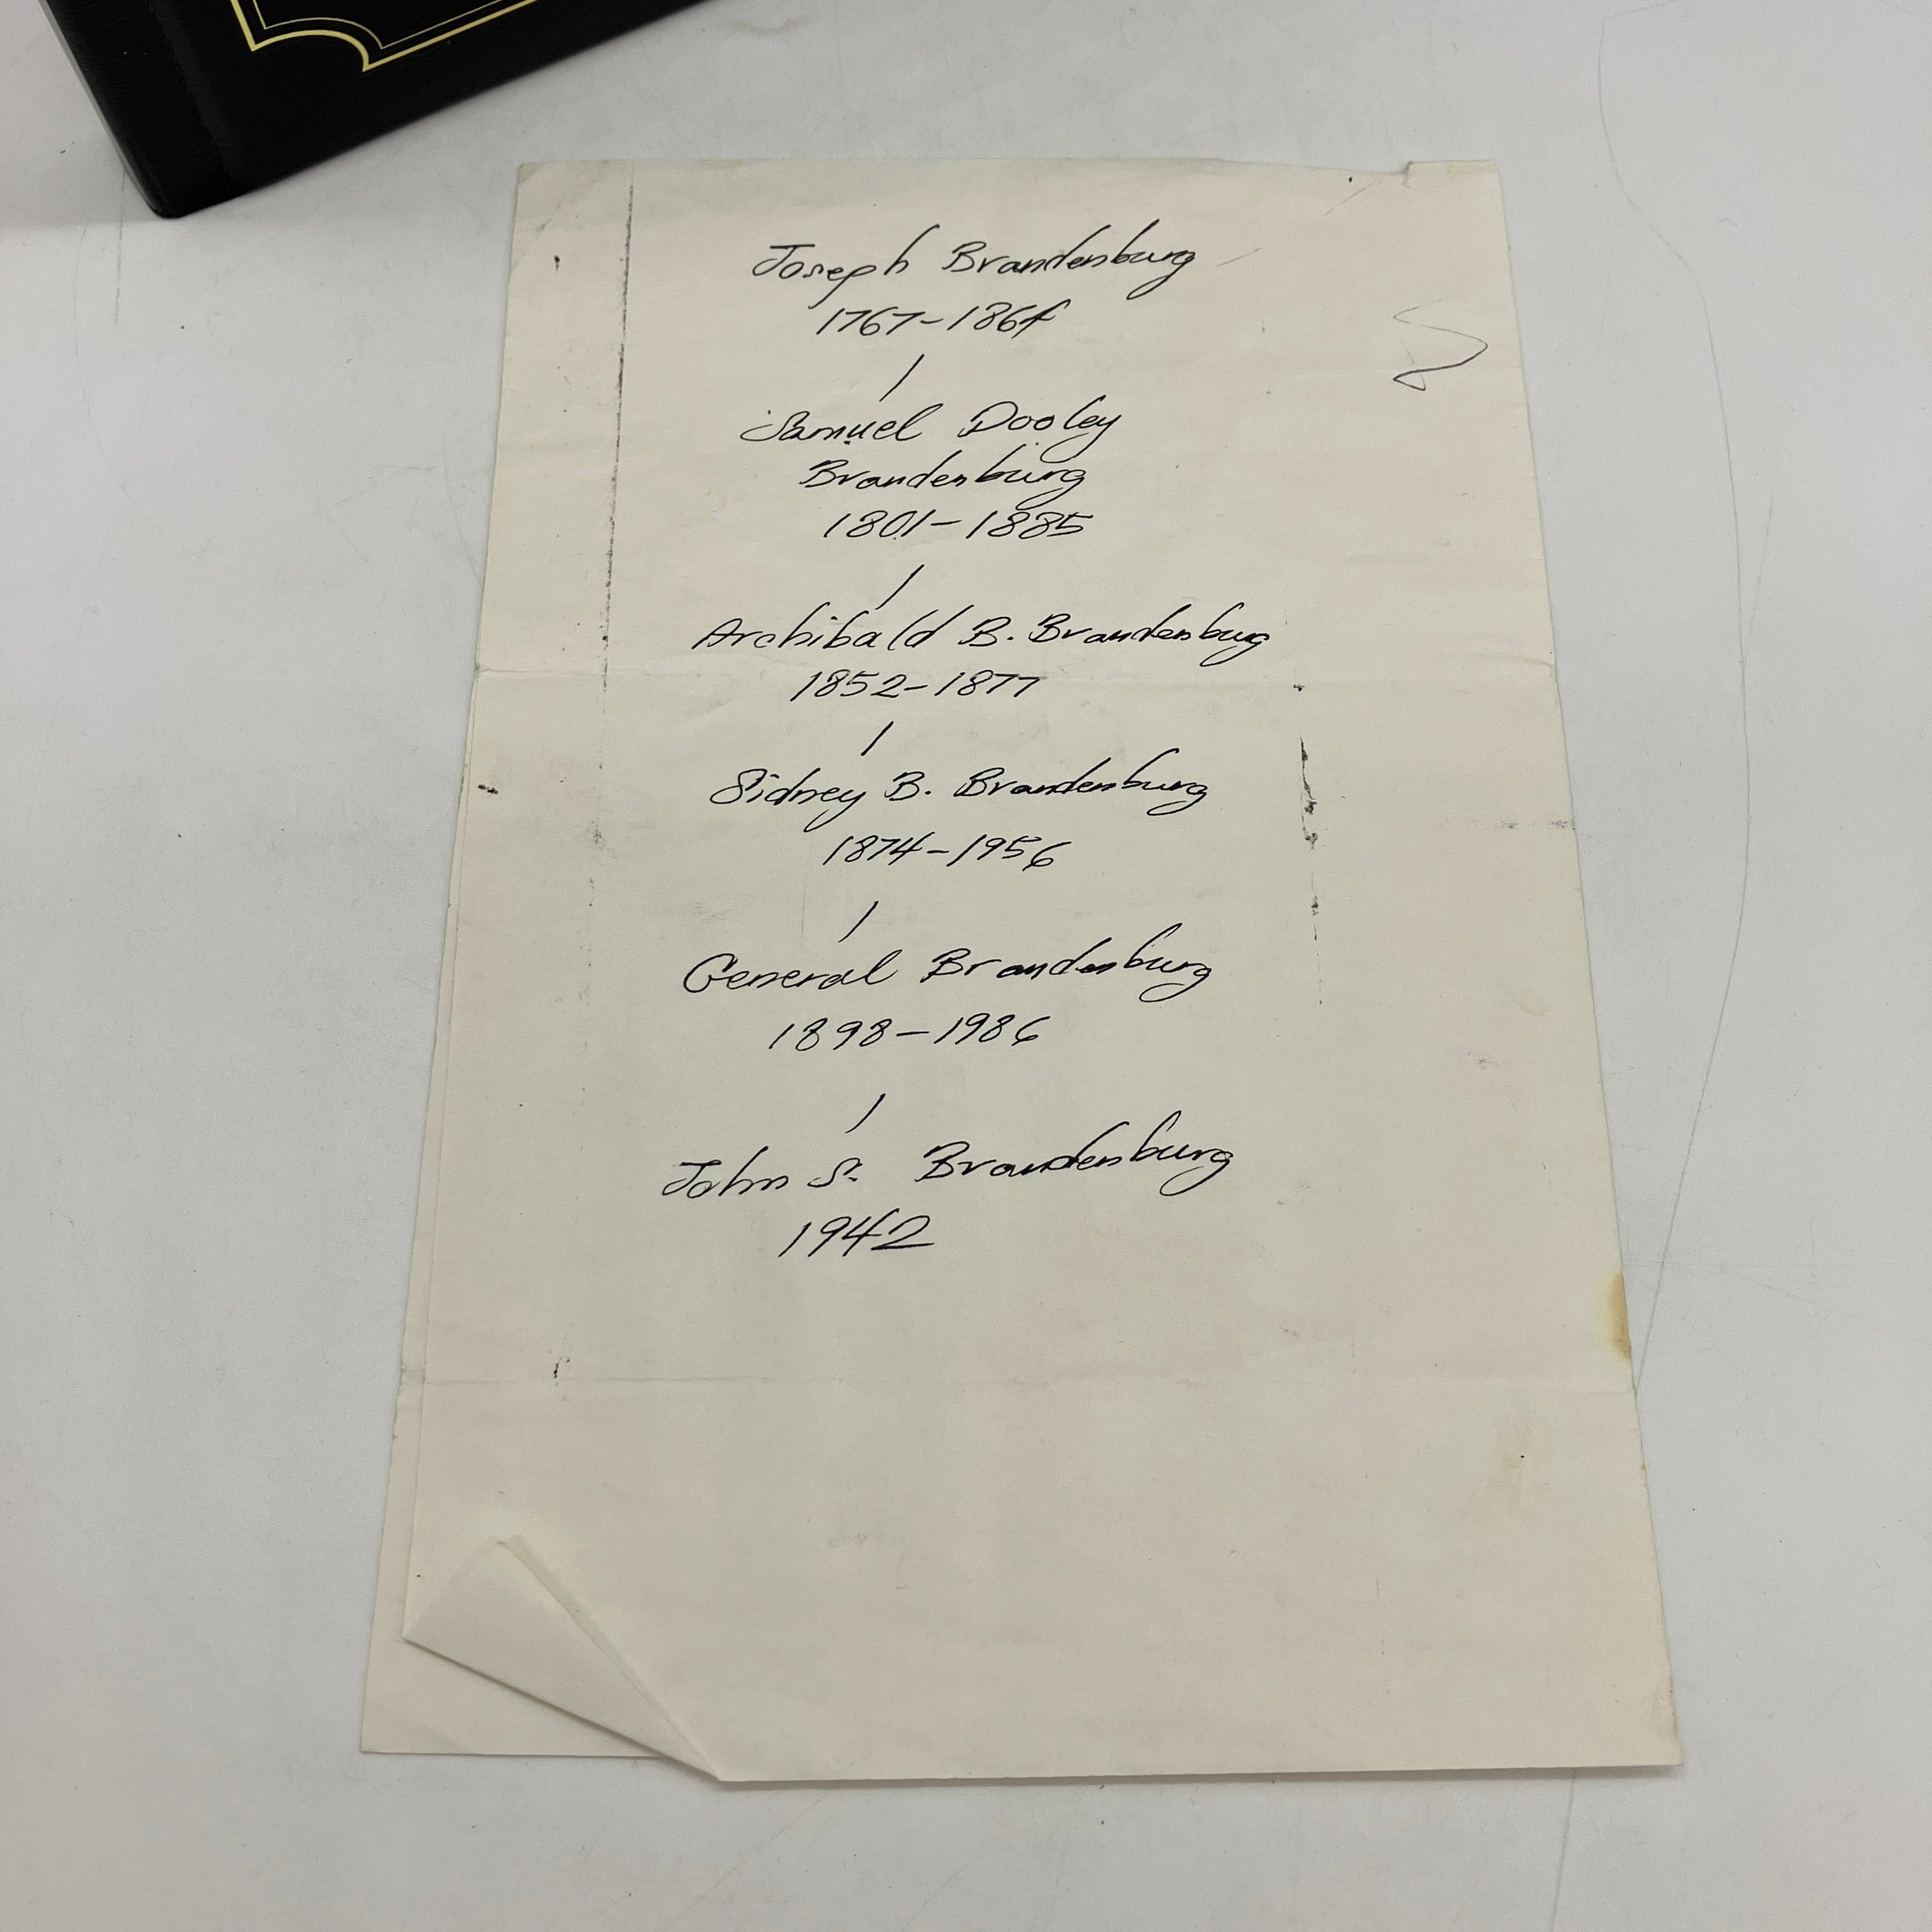 Joseph Brandenburg
1767-1864
Samuel Dooley
Brandenburg
1801-1885
Archibald B. Brandenburg
1852-1877
Sidney B. Brandenburg
1874-1956
General Brandenburg
1898-1986
John S. Brandenburg
1942